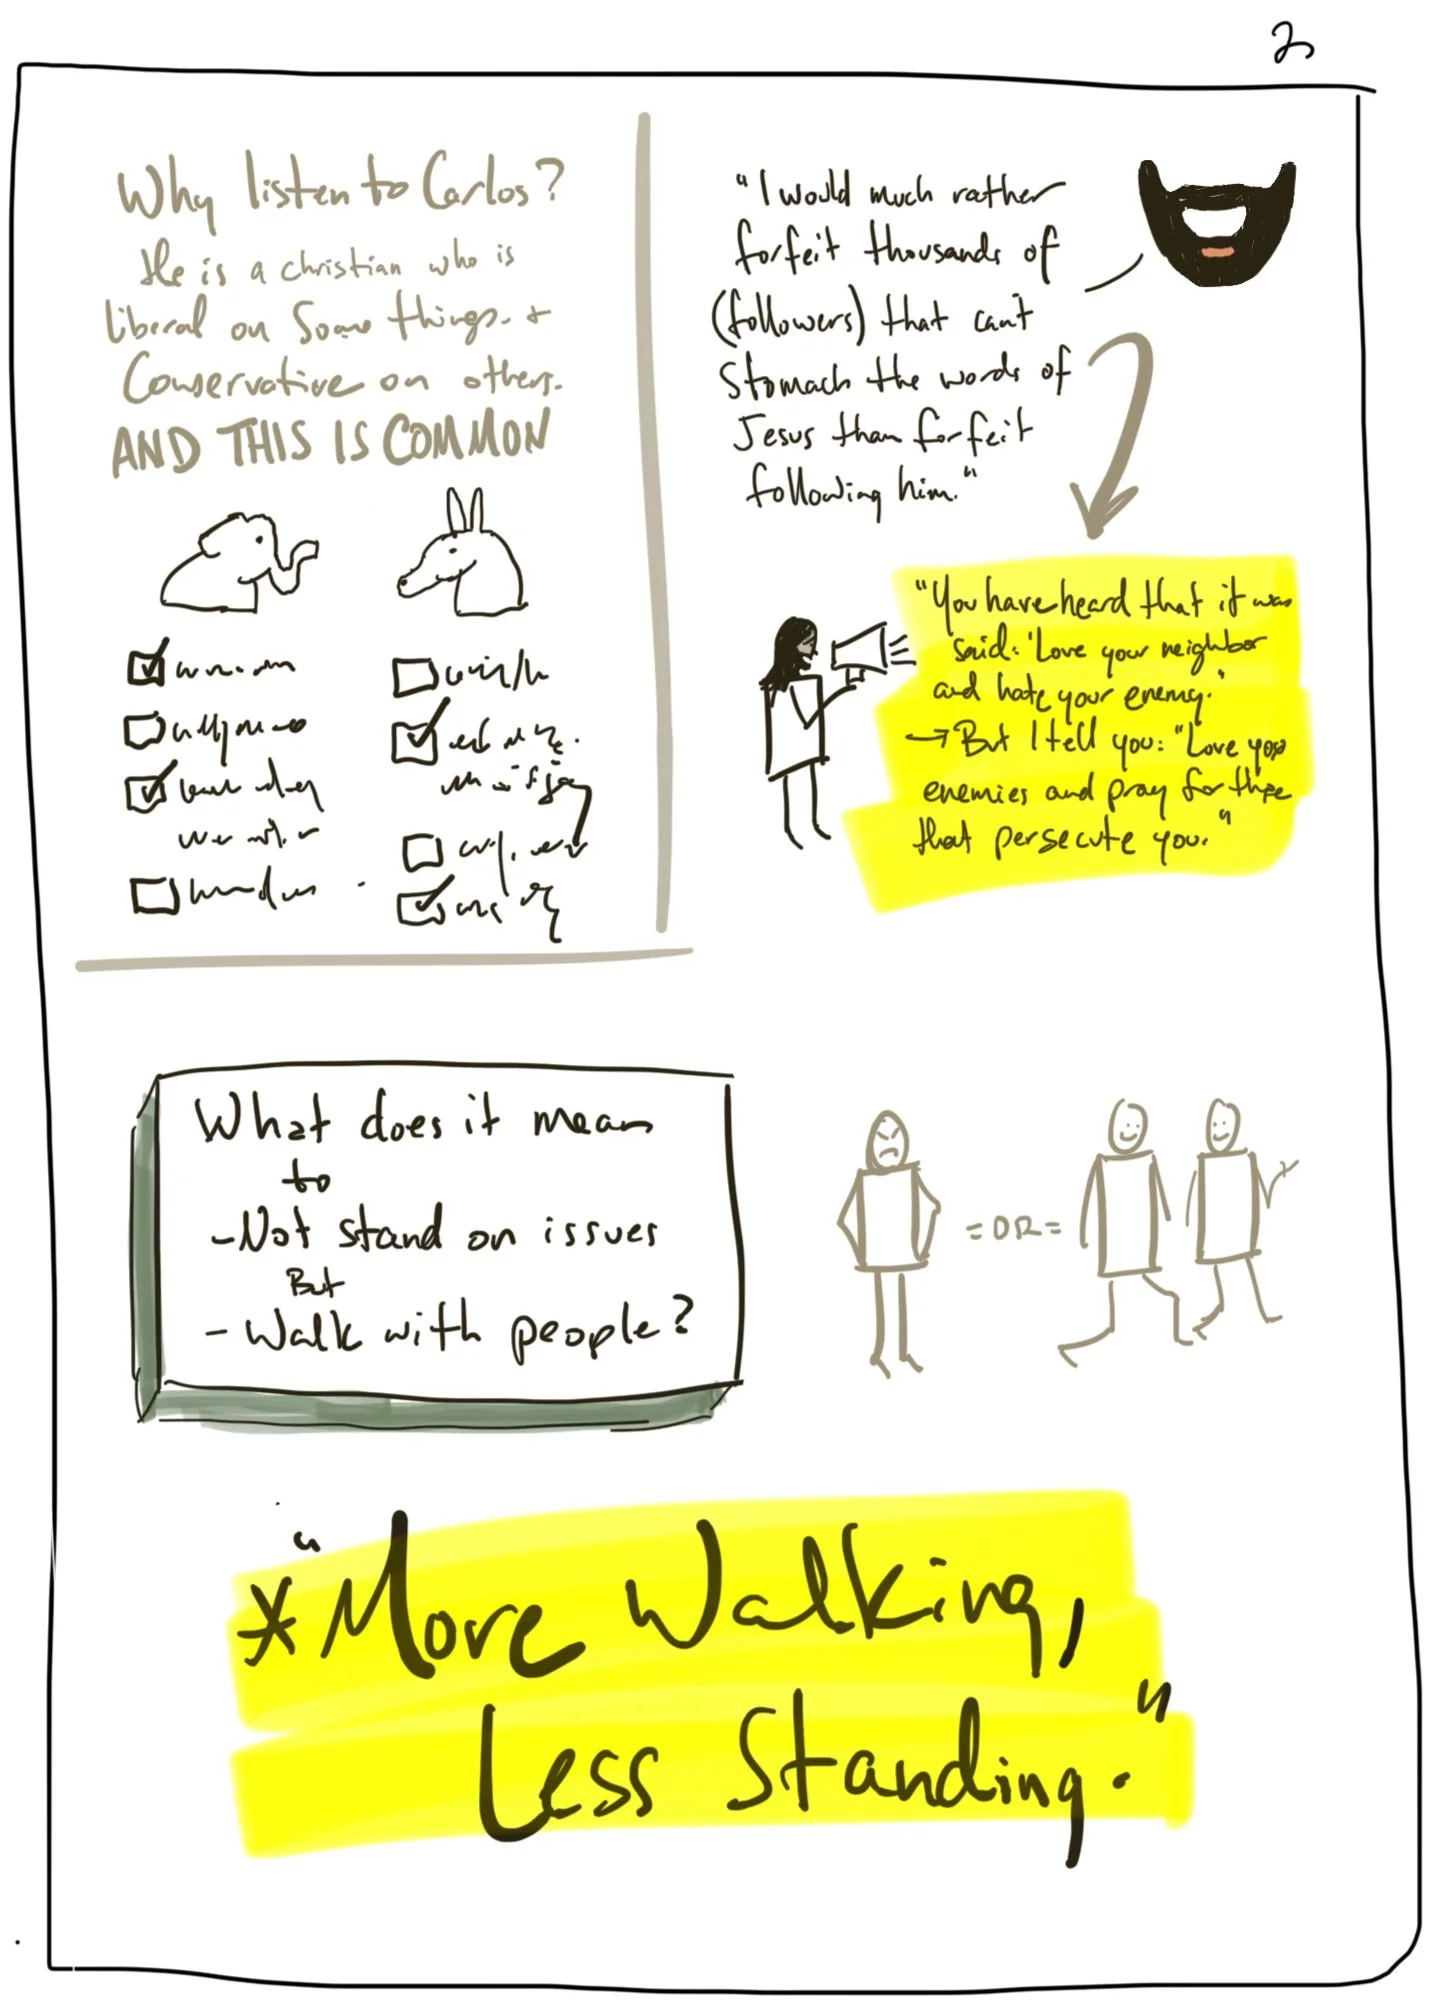 2
Why listen to Carlos?
He is a christian who is
liberal on Some things. +
Conservative on others.
AND THIS IS COMMON
"I would much rather
forfeit thousands of
(followers) that can't
Stomach the words of
Jesus than forfeit
following him."
"You have heard that it was
said: 'Love your neighbor
and hate your enemy."
→ But I tell you: "Love your
enemies and pray for those
that persecute you."
What does it mean
to
- Not stand on issues
But
- Walk with people?
= OR =
* "More Walking,
Less Standing."